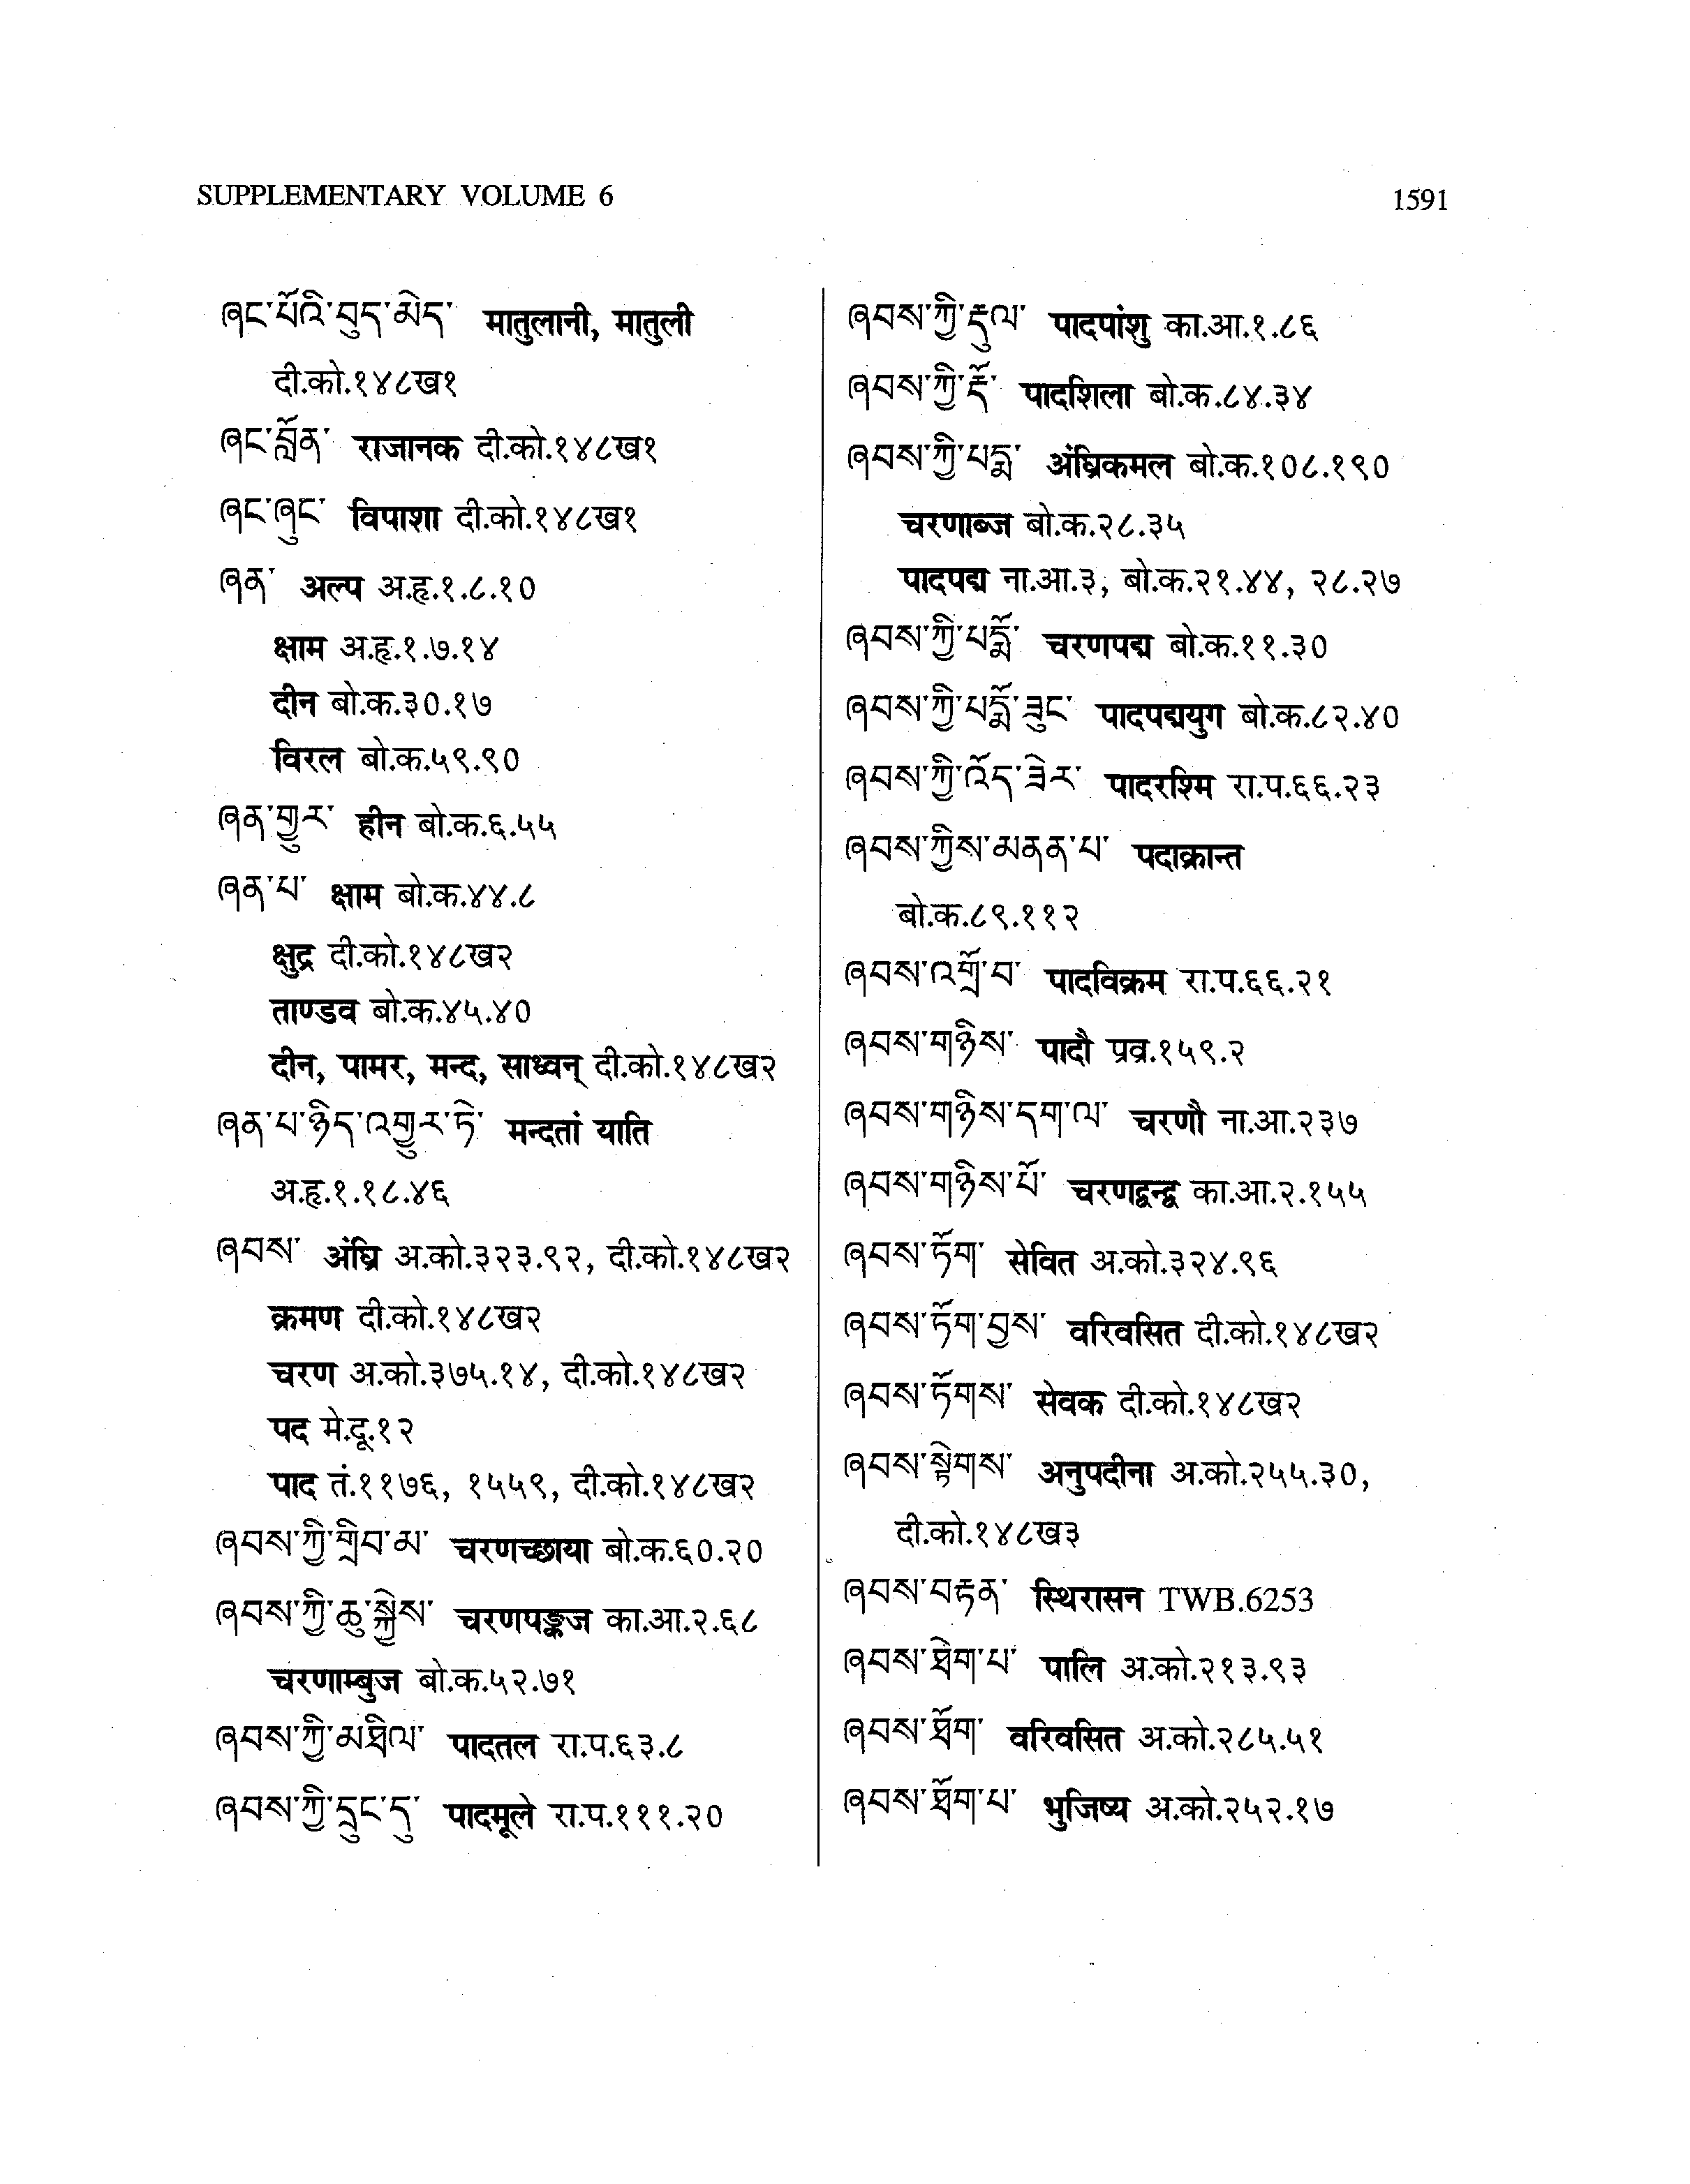 SUPPLEMENTARY VOLUME 6
1591
ཞང་པོའི་བུད་མེད་ मातुलानी, मातुली
दी.को.१४८ख१
ཞང་བློན་ राजानक दी.को.१४८ख१
ཞང་ཞུང་ विपाशा दी.को.१४८ख१
ཞན་ अल्प अ.हृ.१.८.१०
क्षाम अ.हृ.१.७.१४
दीन बो.क.३०.१७
विरल बो.क.५९.९०
ཞན་གྱུར་ हीन बो.क.६.५५
ཞན་པ་ क्षाम बो.क.४४.८
क्षुद्र दी.को.१४८ख२
ताण्डव बो.क.४५.४०
दीन, पामर, मन्द, साध्वन् दी.को.१४८ख२
ཞན་པ་ཉིད་འགྱུར་ཏེ་ मन्दतां याति
अ.हृ.१.१८.४६
ཞབས་ अंघ्रि अ.को.३२३.९२, दी.को.१४८ख२
क्रमण दी.को.१४८ख२
चरण अ.को.३७५.१४, दी.को.१४८ख२
पद मे.दू.१२
पाद तं.११७६, १५५९, दी.को.१४८ख२
ཞབས་ཀྱི་གྲིབ་མ་ चरणच्छाया बो.क.६०.२०
ཞབས་ཀྱི་ཆུ་སྐྱེས་ चरणपङ्कज का.आ.२.६८
चरणाम्बुज बो.क.५२.७१
ཞབས་ཀྱི་མཐིལ་ पादतल रा.प.६३.८
ཞབས་ཀྱི་དྲུང་དུ་ पादमूले रा.प.१११.२०
ཞབས་ཀྱི་རྡུལ་ पादपांशु का.आ.१.८६
ཞབས་ཀྱི་རྡོ་ पादशिला बो.क.८४.३४
ཞབས་ཀྱི་པདྨ་ अंघ्रिकमल बो.क.१०८.१९०
चरणाब्ज बो.क.२८.३५
पादपद्म ना.आ.३, बो.क.२१.४४, २८.२७
ཞབས་ཀྱི་པདྨོ་ चरणपद्म बो.क.११.३०
ཞབས་ཀྱི་པདྨོ་ཟུང་ पादपद्मयुग बो.क.८२.४०
ཞབས་ཀྱི་འོད་ཟེར་ पादरश्मि रा.प.६६.२३
ཞབས་ཀྱིས་མནན་པ་ पदाक्रान्त
बो.क.८९.११२
ཞབས་འགྲོ་བ་ पादविक्रम रा.प.६६.२१
ཞབས་གཉིས་ पादौ प्रव्र.१५९.२
ཞབས་གཉིས་དག་ལ་ चरणौ ना.आ.२३७
ཞབས་གཉིས་པོ་ चरणद्वन्द्व का.आ.२.१५५
ཞབས་ཏོག་ सेवित अ.को.३२४.९६
ཞབས་ཏོག་བྱས་ वरिवसित दी.को.१४८ख२
ཞབས་ཏོགས་ सेवक दी.को.१४८ख२
ཞབས་སྟེགས་ अनुपदीना अ.को.२५५.३०,
दी.को.१४८ख३
ཞབས་བརྟན་ स्थिरासन TWB.6253
ཞབས་ཐེག་པ་ पालि अ.को.२१३.९३
ཞབས་ཐོག་ वरिवसित अ.को.२८५.५१
ཞབས་ཐོག་པ་ भुजिष्य अ.को.२५२.१७